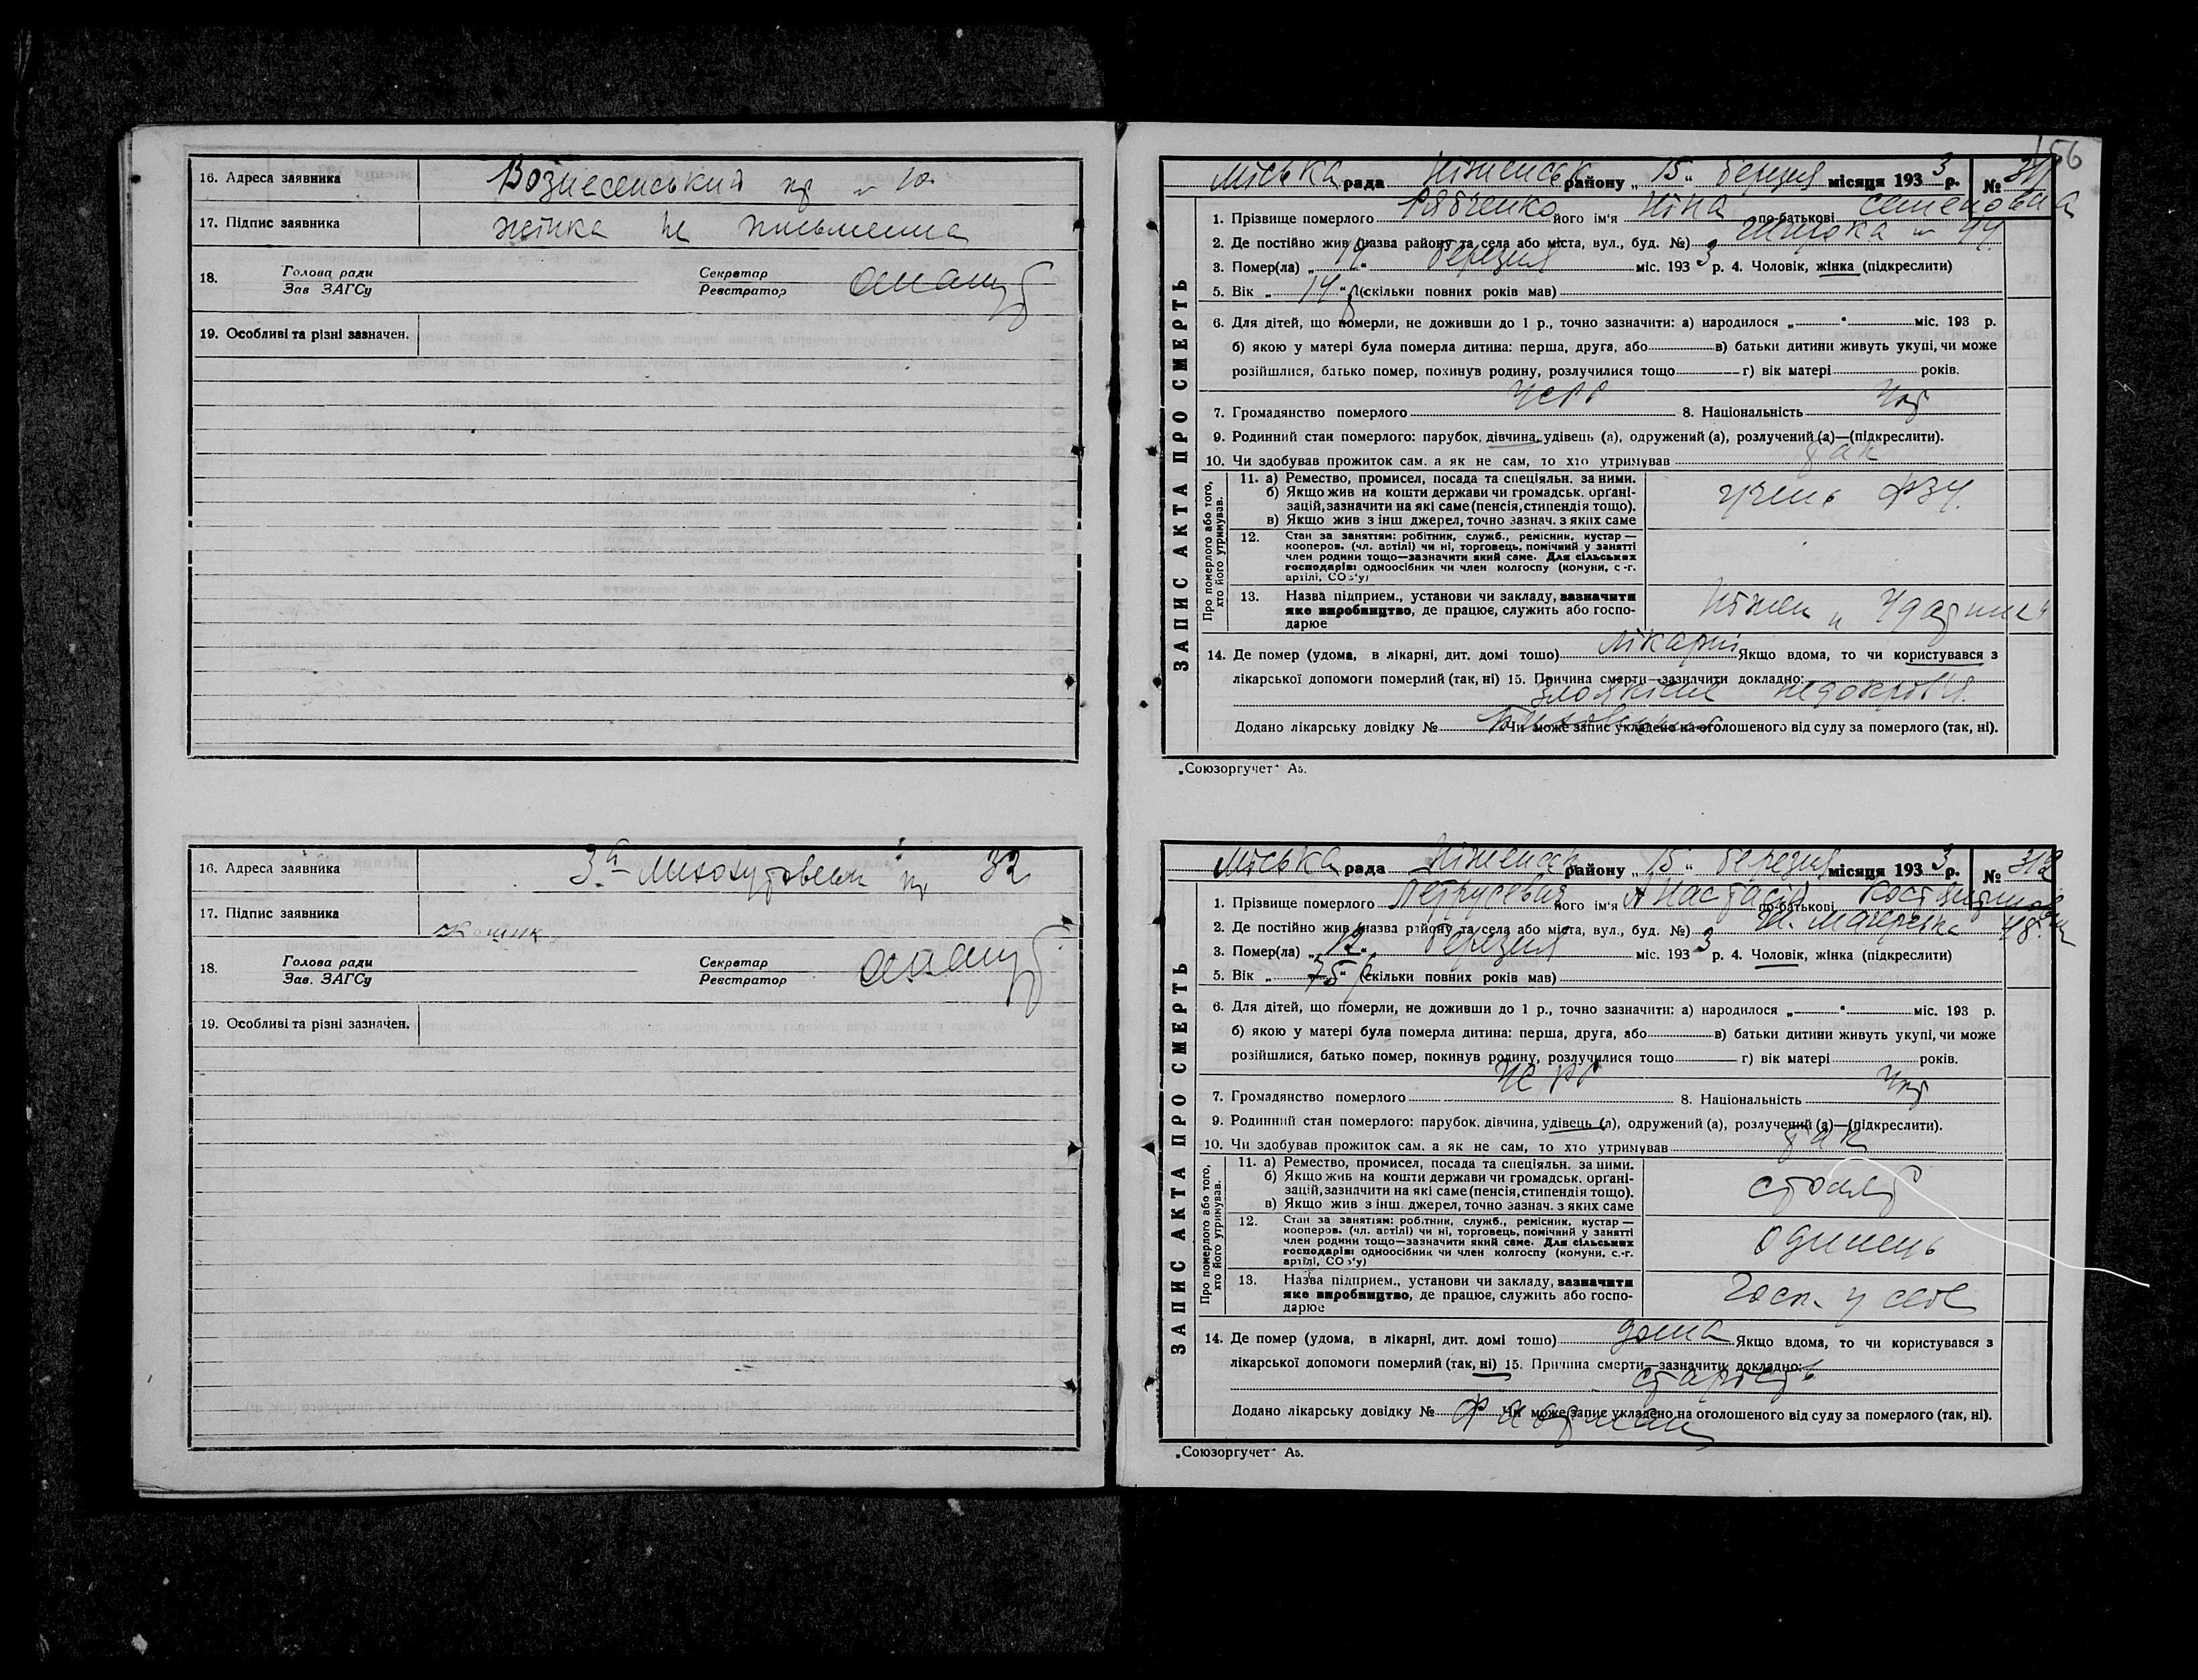 16. Адреса заявника Вознесенський пр № 10
17. Підпис заявника жінка не письменна
18. Голова ради Секретар
Зав ЗАГСу Реєстратор
19. Особливі та різні зазначен.
16. Адреса заявника 32
17. Підпис заявника
18. Голова ради Секретар
Зав. ЗАГСу Реєстратор
19. Особливі та різні зазначен.
156
Міська рада Ніженськ району „ 15 “ березня місяця 193 3 р. № 311
ЗАПИС АКТА ПРО СМЕРТЬ
1. Прізвище померлого Рябченко його ім'я Ніна по-батькові Семеновна
2. Де постійно жив (назва району та села або міста, вул., буд. №) Широка № 44
3. Помер(ла) „ “ березня міс. 193 3 р. 4. Чоловік, жінка (підкреслити)
5. Вік „ 14 “ р (скільки повних років мав)
6. Для дітей, що померли, не доживши до 1 р., точно зазначити: а) народилося „ “ міс. 193 р.
б) якою у матері була померла дитина: перша, друга, або в) батьки дитини живуть укупі, чи може
розійшлися, батько помер, покинув родину, розлучилися тощо г) вік матері років.
7. Громадянство померлого УСРР 8. Національність Укр
9. Родинний стан померлого: парубок, дівчина, удівець (а), одружений (а), розлучений (а)—(підкреслити).
10. Чи здобував прожиток сам, а як не сам, то хто утримував так
Про померлого або того, хто його утримував.
11. а) Ремество, промисел, посада та спеціяльн. за ними.
б) Якщо жив на кошти держави чи громадськ. орґані-
зацій, зазначити на які саме (пенсія, стипендія тощо).
в) Якщо жив з інш джерел, точно зазнач. з яких саме
учень ФЗУ.
12. Стан за заняттям: робітник, служб., ремісник, кустар—
кооперов. (чл. артілі) чи ні, торговець, помічний у занятті
член родини тощо—зазначити який саме. Для сільських
господарів: одноосібник чи член колгоспу (комуни, с.-г.
артілі, СОЗ'у)
13. Назва підприєм., установи чи закладу, зазначити
яке виробництво, де працює, служить або госпо-
дарює
Ніжен „ Ударник “
14. Де помер (удома, в лікарні, дит. домі тощо) лікарні Якщо вдома, то чи користувався з
лікарської допомоги померлий (так, ні) 15. Причина смерти—зазначити докладно:
злоякісне недокров'я.
Додано лікарську довідку № Чи може запис укладено на оголошеного від суду за померлого (так, ні).
„Союзоргучет“ А5.
Міська рада Ніженськ району „ 15 “ березня місяця 193 3 р. № 312
ЗАПИС АКТА ПРО СМЕРТЬ
1. Прізвище померлого його ім'я Анастасій по-батькові Костянтинович
2. Де постійно жив (назва району та села або міста, вул., буд. №) 48
3. Помер(ла) „ 12 “ березня міс. 193 3 р. 4. Чоловік, жінка (підкреслити)
5. Вік „ 75 “ р (скільки повних років мав)
6. Для дітей, що померли, не доживши до 1 р., точно зазначити: а) народилося „ “ міс. 193 р.
б) якою у матері була померла дитина: перша, друга, або в) батьки дитини живуть укупі, чи може
розійшлися, батько помер, покинув родину, розлучилися тощо г) вік матері років.
7. Громадянство померлого УСРР 8. Національність Укр
9. Родинний стан померлого: парубок, дівчина, удівець (а), одружений (а), розлучений (а)—(підкреслити).
10. Чи здобував прожиток сам, а як не сам, то хто утримував так
Про померлого або того, хто його утримував.
11. а) Ремество, промисел, посада та спеціяльн. за ними.
б) Якщо жив на кошти держави чи громадськ. орґані-
зацій, зазначити на які саме (пенсія, стипендія тощо).
в) Якщо жив з інш. джерел, точно зазнач. з яких саме
столяр
12. Стан за заняттям: робітник, служб., ремісник, кустар—
кооперов. (чл. артілі) чи ні, торговець, помічний у занятті
член родини тощо—зазначити який саме. Для сільських
господарів: одноосібник чи член колгоспу (комуни, с.-г.
артілі, СОЗ'у)
одинець
13. Назва підприєм., установи чи закладу, зазначити
яке виробництво, де працює, служить або госпо-
дарює
Госп. у себе
14. Де помер (удома, в лікарні, дит. домі тощо) дома Якщо вдома, то чи користувався з
лікарської допомоги померлий (так, ні) 15. Причина смерти—зазначити докладно:
старість
Додано лікарську довідку № Чи може запис укладено на оголошеного від суду за померлого (так, ні).
„Союзоргучет“ А5.